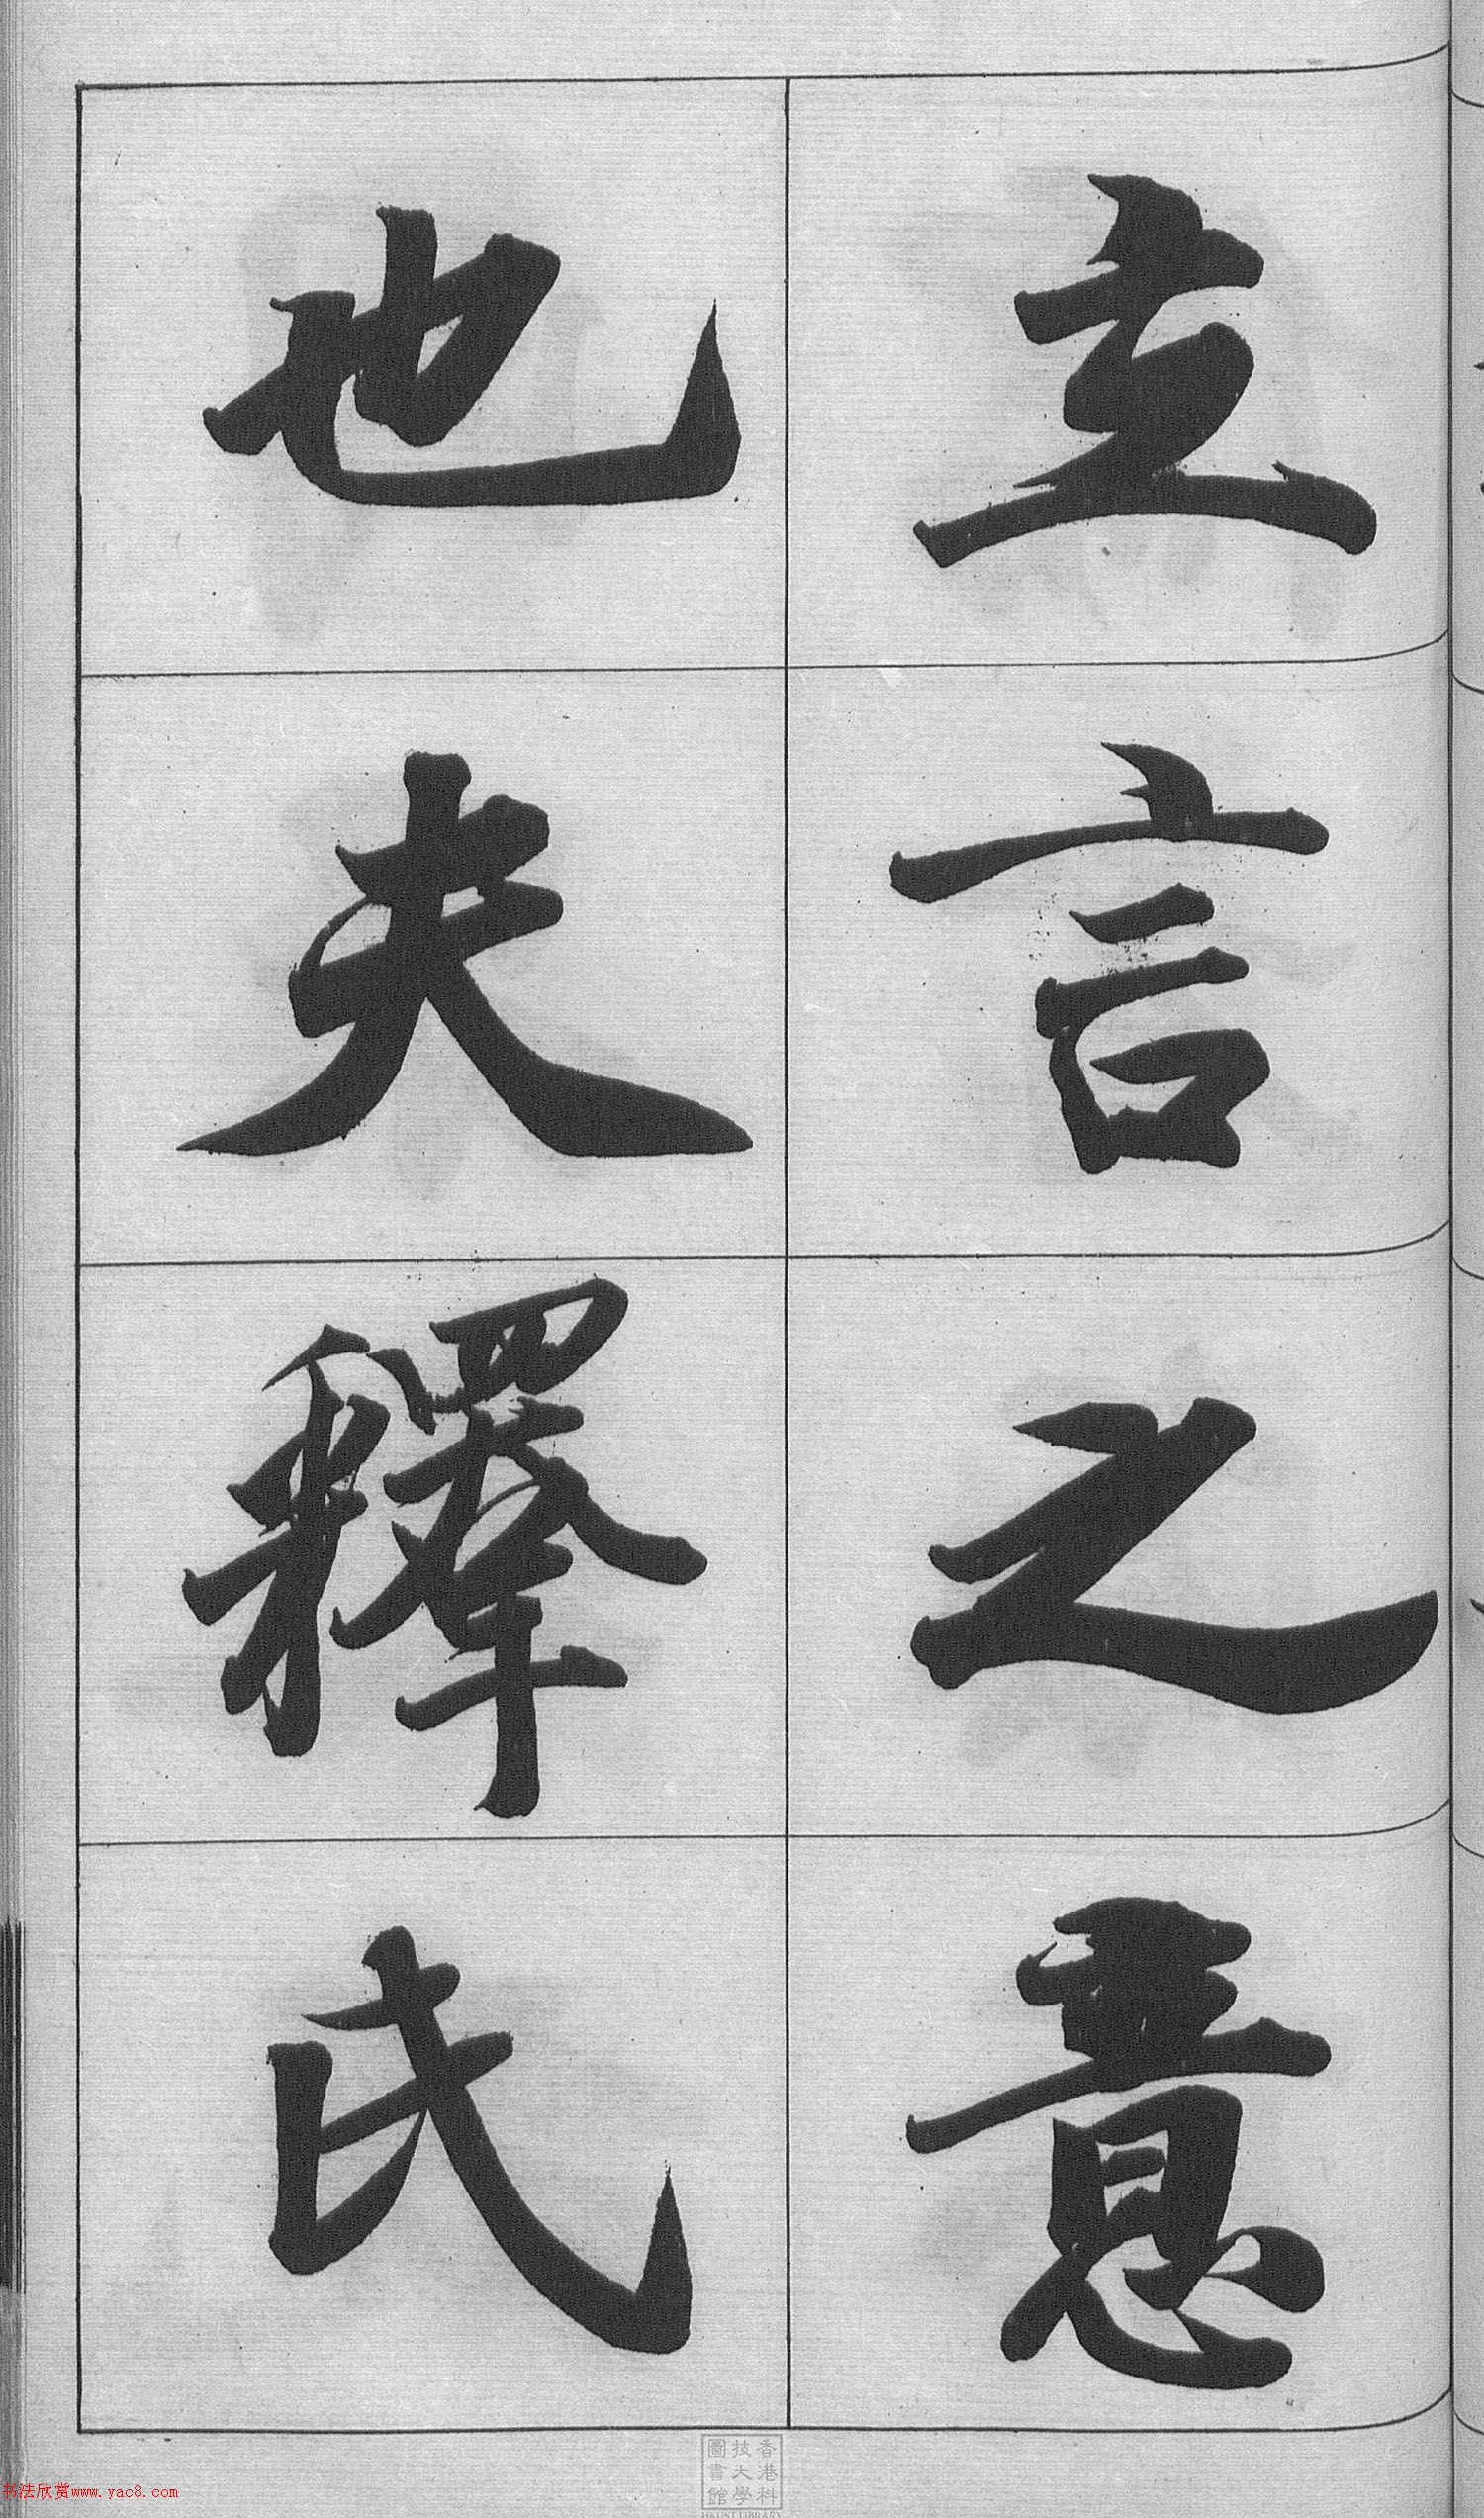 立言之意
也夫釋氏
香港科
技大學
圖書館
HKUST LIBRARY
书法欣赏www.yac8.com